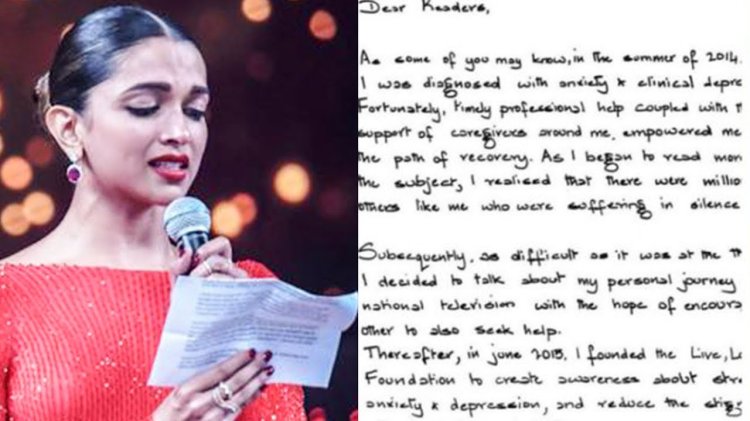 Dear Readers,
As some of you may know, in the summer of 2014.
I was diagnosed with anxiety & clinical depre
Fortunately, timely professional help coupled with t
support of caregivers around me, empowered me
the path of recovery. As I began to read mor
the subject, I realised that there were millio
others like me who were suffering in silence
Subsequently, as difficult as it was at the t
I decided to talk about my personal journey
national television with the hope of encoura
other to also seek help.
Thereafter, in june 2015, I founded the Live, L
Foundation to create awareness about stre
anxiety & depression, and reduce the stig